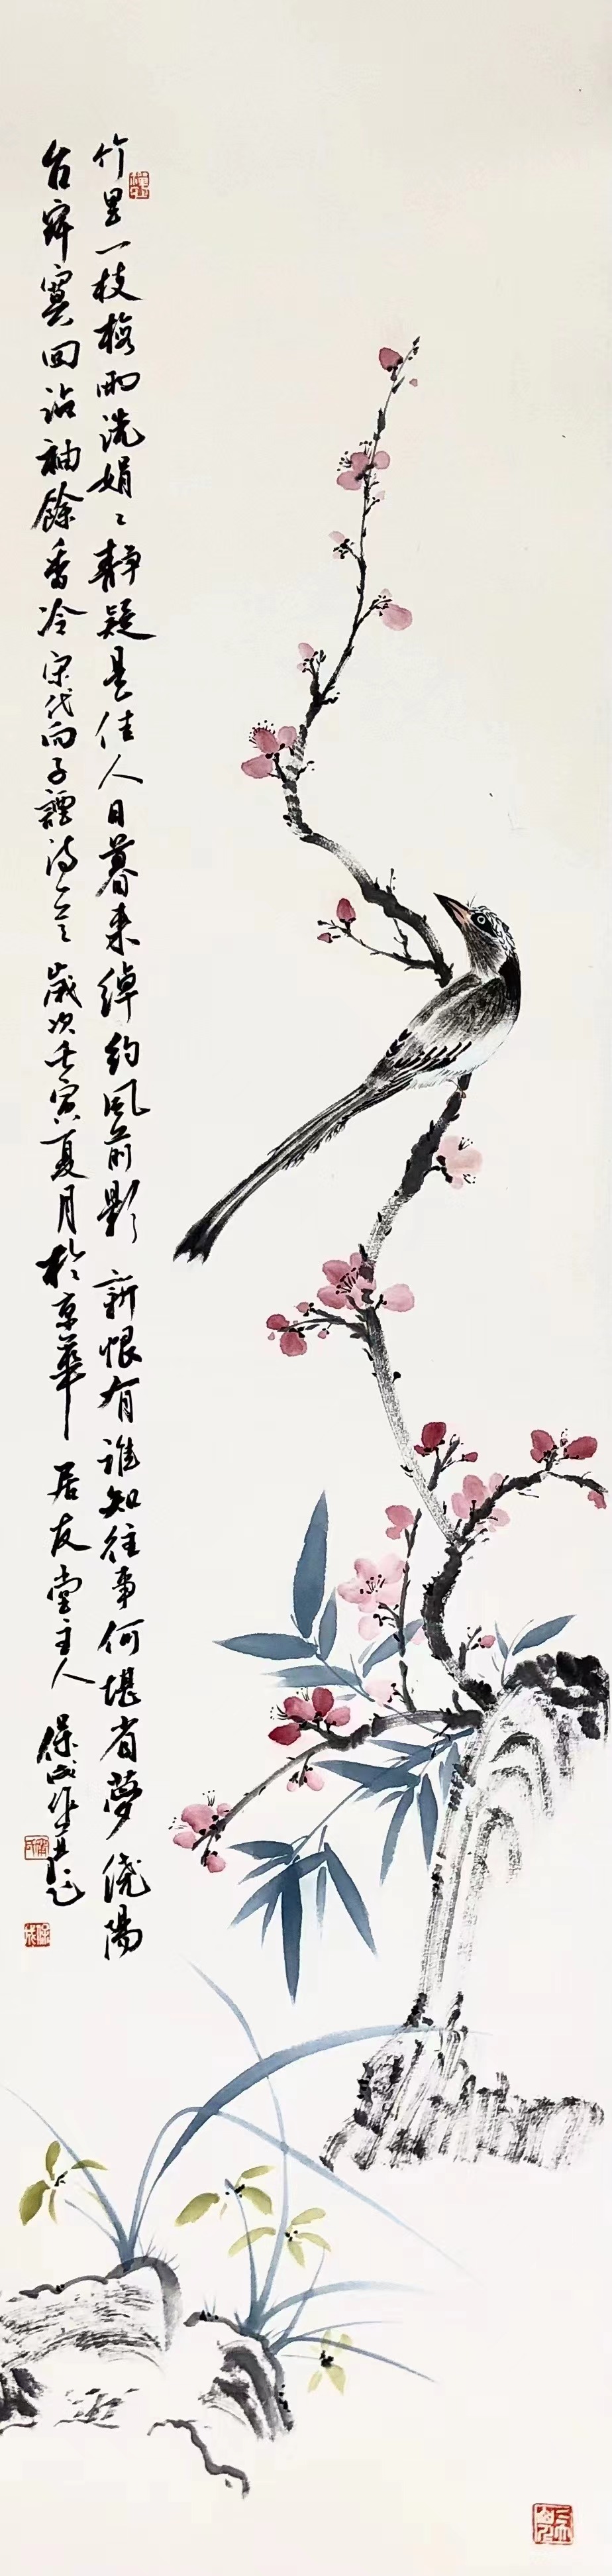 竹里一枝梅雨洗娟〻静疑是佳人日暮来绰约风前影 新恨有谁知往事何堪省夢绕陽
台寂寞回沾袖餘香冷 宋代向子諲诗一首 歲次壬寅夏月於京華 居友堂主人 保成作并題